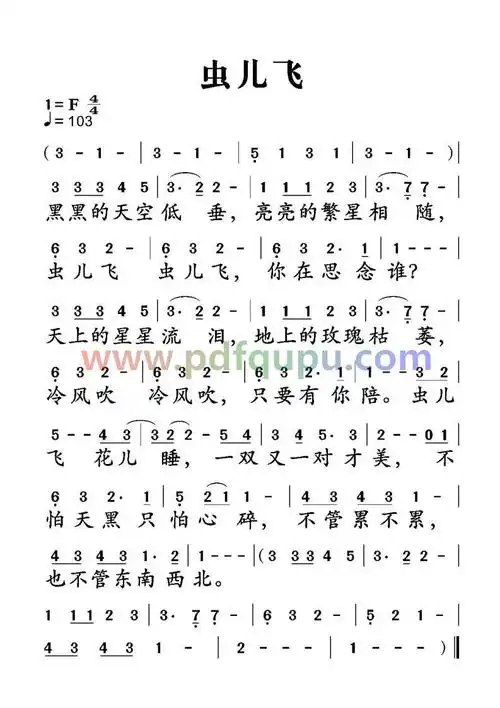 虫儿飞
1= F 4/4
♩= 103
( 3 - 1 - | 3 - 1 - | 5̣ 1 3 1 | 3 - 1 - )|
3 3 3 4 5 | 3· 2 2 - | 1 1 1 2 3 | 3· 7̣ 7̣ - |
黑黑的天空低 垂，亮亮的繁星相 随，
6̣ 3 2 - | 6̣ 3 2 - | 6̣ 3 2· 1 | 1 - - - |
虫儿飞 虫儿飞，你在思念谁?
3 3 3 4 5 | 3· 2 2 - | 1 1 1 2 3 | 3· 7̣ 7̣ - |
天上的星星流 泪，地上的玫瑰枯 萎，
www.pdfqupu.com
6̣ 3 2 - | 6̣ 3 2 - | 6̣ 3 2· 1 | 1 - 3 2 |
冷风吹 冷风吹，只要有你陪。虫儿
5 - - 4 3 | 3 2 2 - 4 3 | 3 4 5· 3 | 2 - - 0 1 |
飞 花儿 睡，一双又一对才美，不
6̣ 3 2· 1 | 5̣ 2 2 1 - - | 4 3 4 3 1 - |
怕天黑只怕心碎，不管累不累，
4 3 4 3 1· 2 | 1 - - - |( 3 3 3 4 5 | 3· 2 2 - |
也不管东南西北。
1 1 1 2 3 | 3· 7̣ 7̣ - | 6̣ 3 2 - | 6̣ 3 2 - |
4 3 4 3 1 - | 2 - - - | 1 - - - )‖